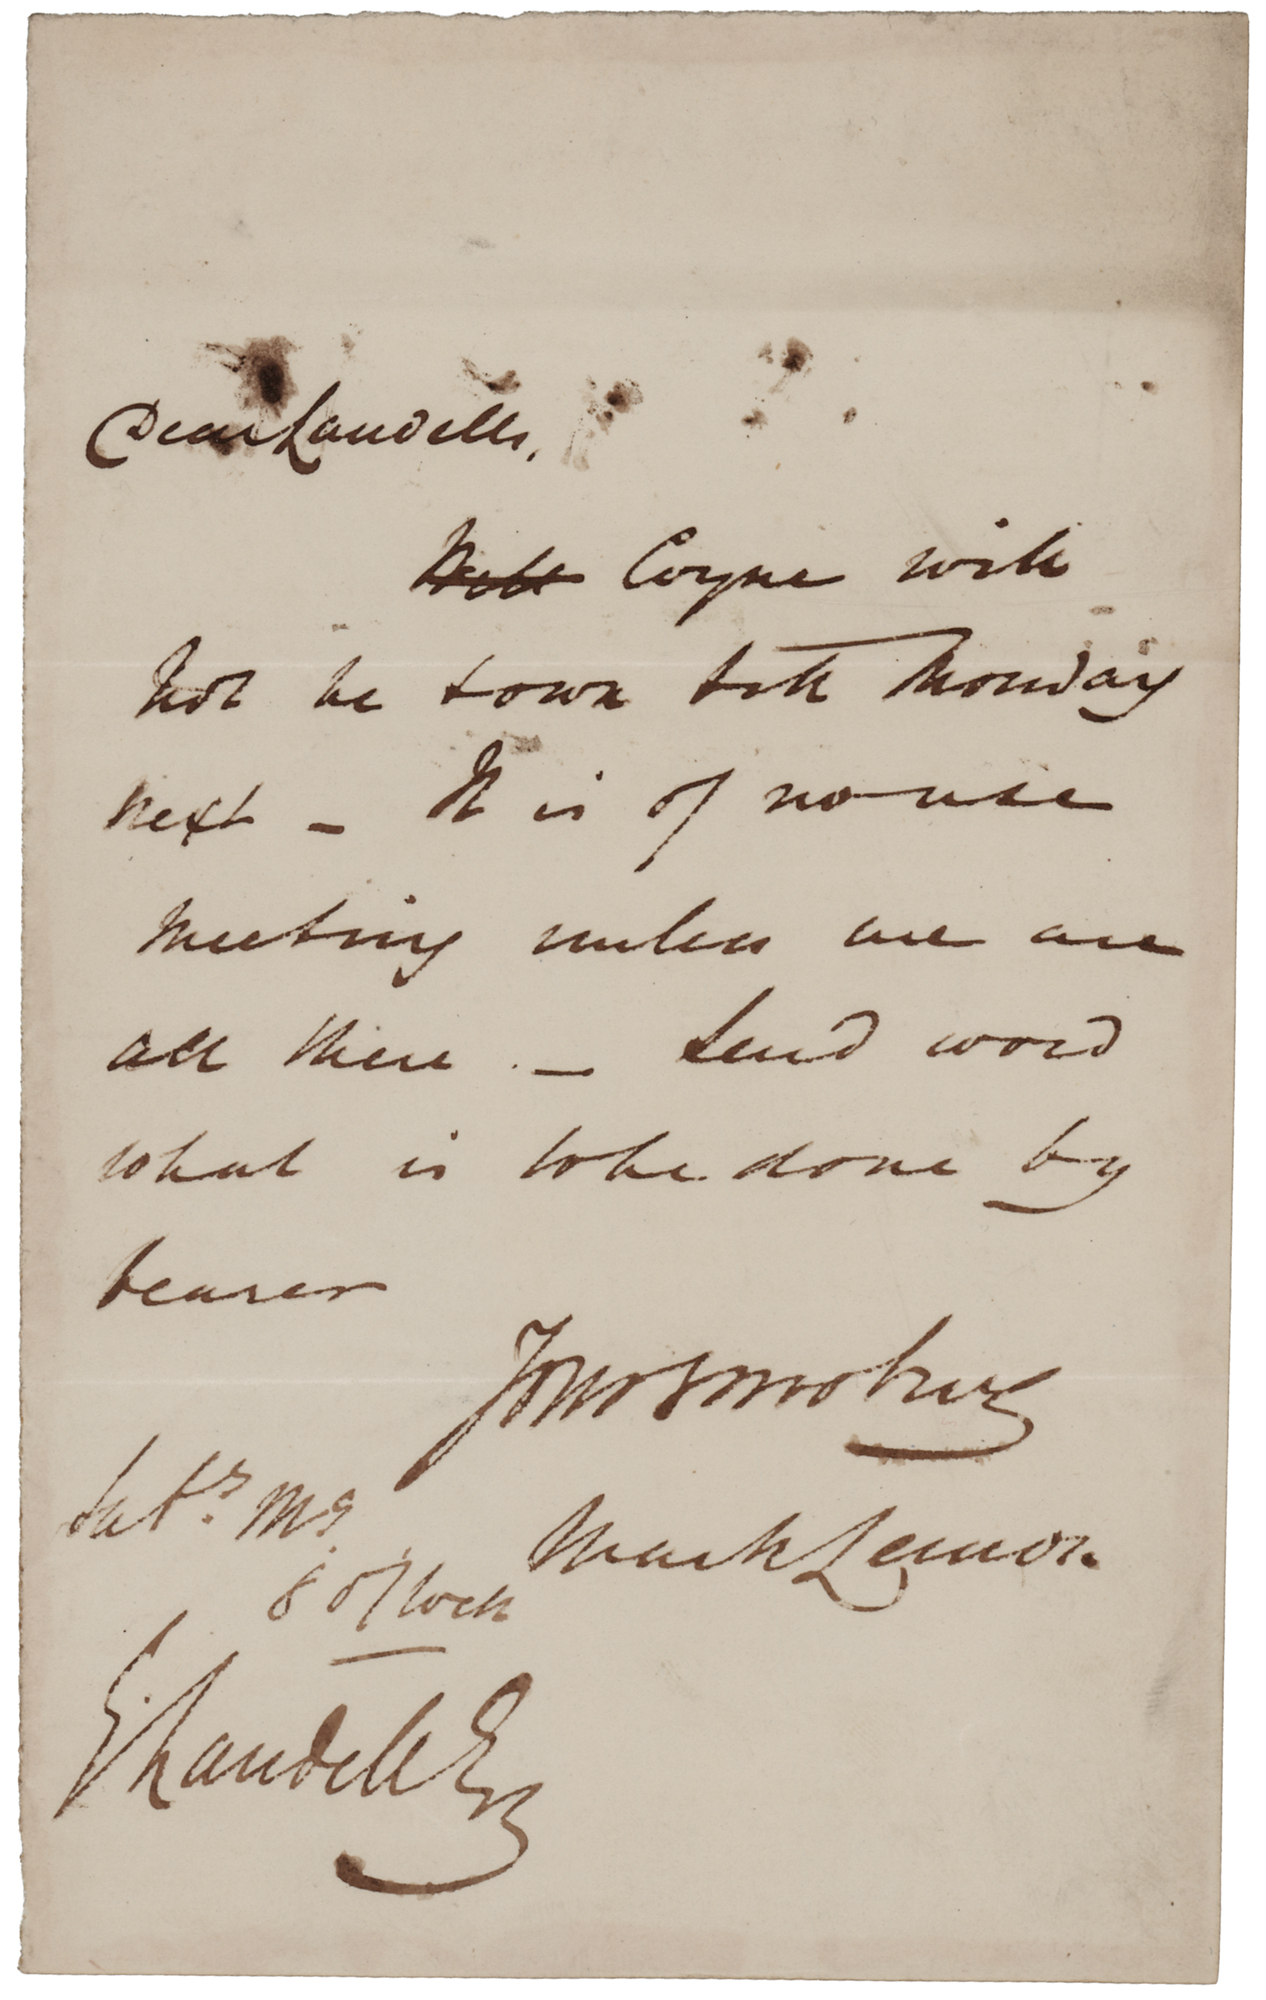 Dear Landells,
Coyne will
not be town till Monday
next – It is of no use
meeting unless we are
all there – Send word
what is to be done by
bearer
Yours
Mark Lemon
Sat.
8 o'clock
E. Landells Esq